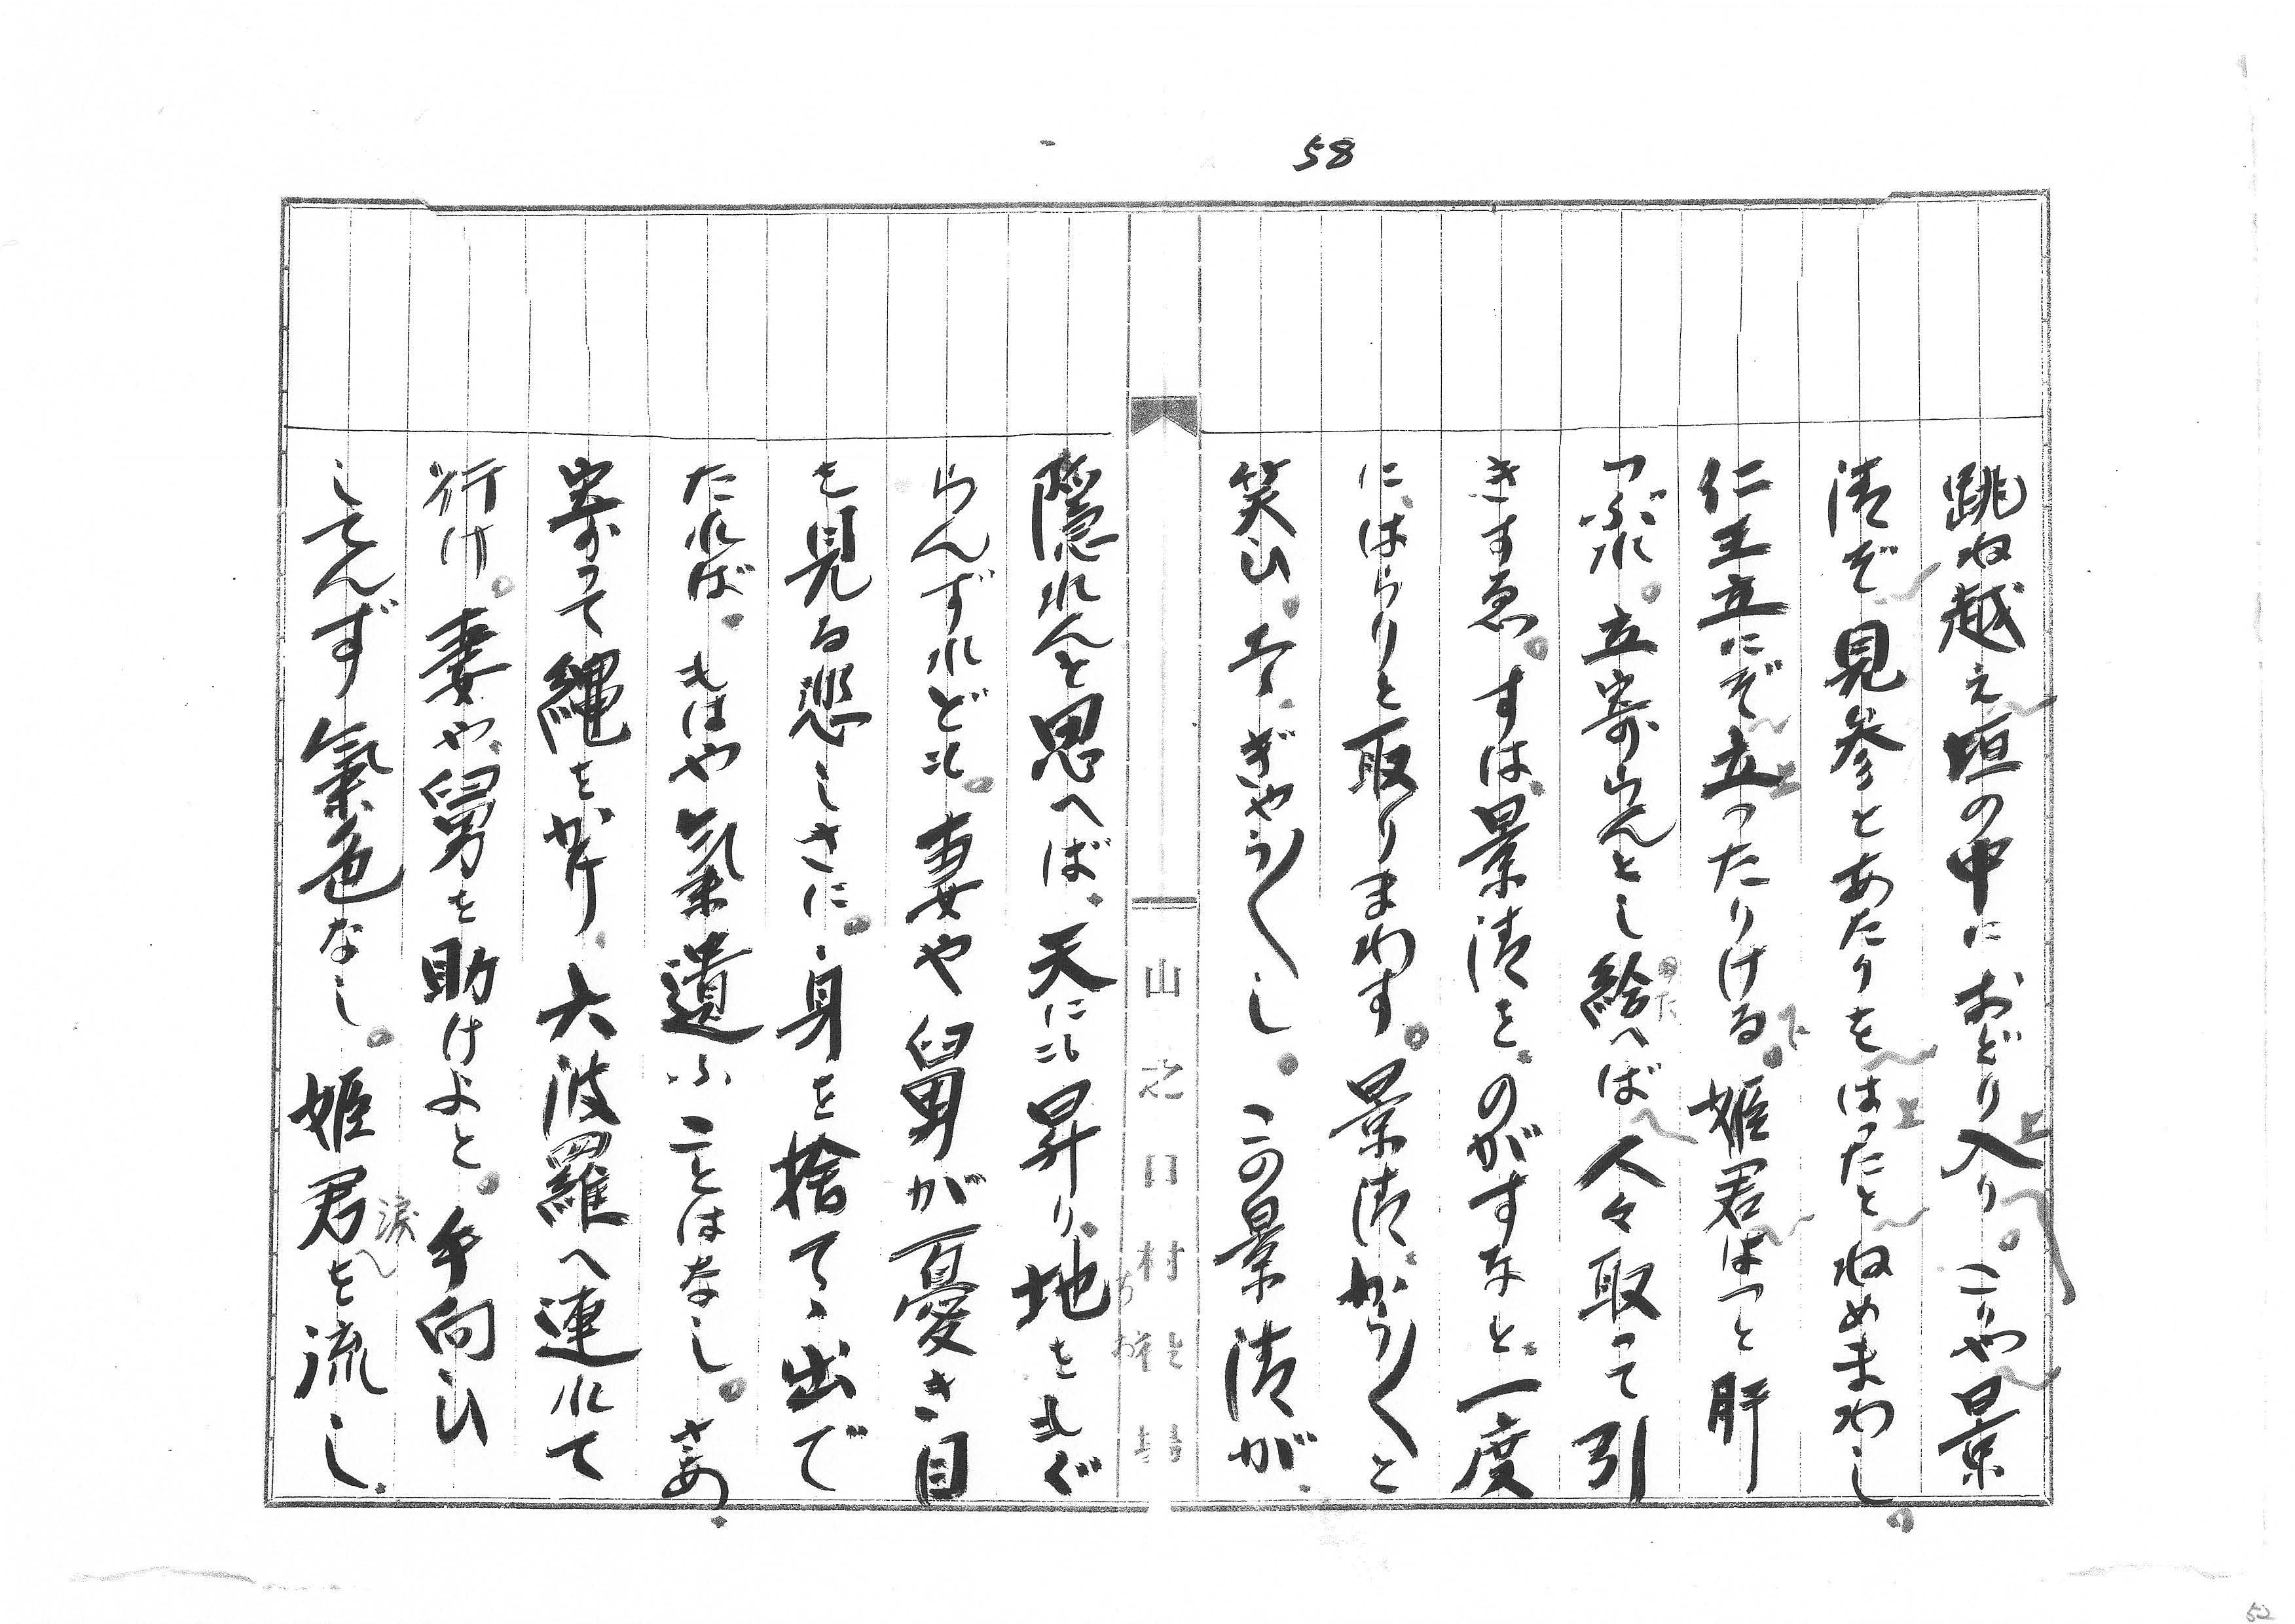 58
跳ね越え垣の中におどり入り。こりや景
清ぞ見参とあたりをはったとねめまわし。
仁王立にぞ立ったりける。姫君はつと肝
つぶれ。立寄らんとし給へば人々取って引
きすゑ。すは景清を、のがすなと、一度
にはらりと取りまわす。景清からからと
笑ひ。
ぎやうぎやうし。この景清が、
隠れんと思へば、天にも昇り、地をもぐ
らんずれども。妻や舅が憂き目
を見る悲しさに。身を捨てゝ出で
たれば、もはや氣遣ふことはなし。さあ、
寄って縄をかけ、六波羅へ連れて
行け。妻や舅を助けよと。手向ひ
してんず氣色なし。姫君を流し、
涙
上
上
上
下
山之口村
52